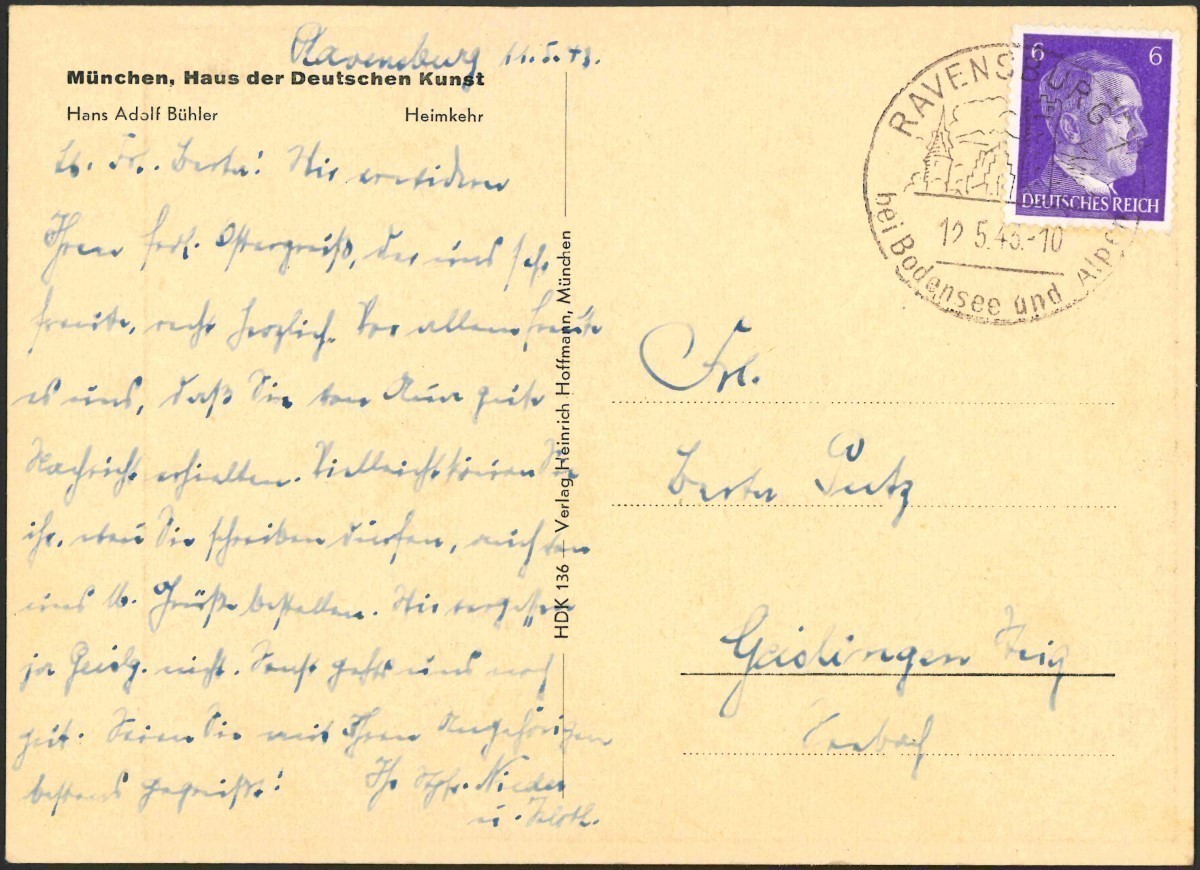 Ravensburg 11.5.43.
München, Haus der Deutschen Kunst
Hans Adolf Bühler Heimkehr
Lb. Frl. Berta! Wir erwidern
Ihren frdl. Ostergruß, der uns sehr
freute, recht herzlich. Vor allem freute
es uns, daß Sie von gute
Nachricht erhielten. Vielleicht können Sie
ihr, wenn Sie schreiben dürfen, auch von
uns lb. Grüße bestellen. Wir vergessen
ja Geislg. nicht. Sonst geht's uns noch
gut. Seien Sie mit Ihren Angehörigen
bestens gegrüßt! Ihr
u.
HDK 136 — Verlag Heinrich Hoffmann, München
RAVENSBURG
12.5.43.-10
bei Bodensee und Alpen
6 6
DEUTSCHES REICH
Frl.
Berta
Geislingen Stig
Seebach